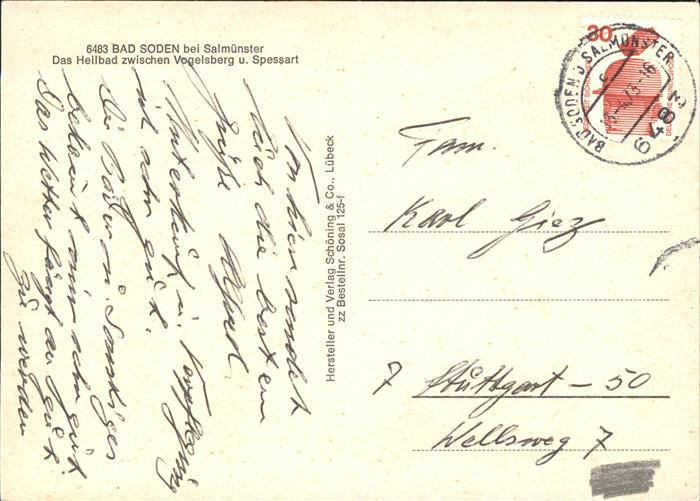 6483 BAD SODEN bei Salmünster
Das Heilbad zwischen Vogelsberg u. Spessart
Von hier sendet
Euch die besten
Grüße
Unterkunft u. Verpflegung
ist sehr gut.
Die Bäder u. Sonstiges
bekommt mir sehr gut
Das Wetter fängt an gut
zu werden
Hersteller und Verlag Schöning & Co., Lübeck
zz Bestellnr. Sosal 125-f
30
BAD SODEN b SALMÜNSTER
c
-4.73-16
6483
Fam.
Karl Giez
7 Stuttgart - 50
Wellsweg 7